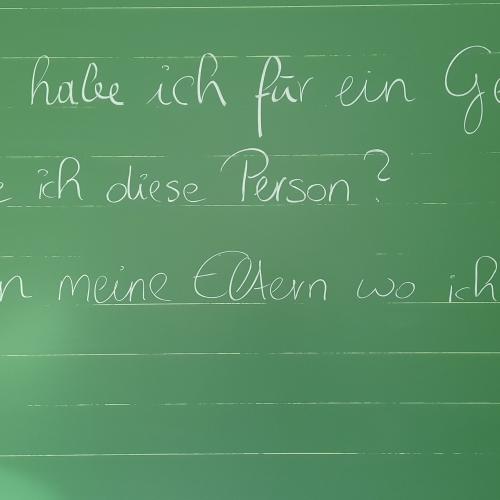 habe ich für ein Ge
e ich diese Person?
n meine Eltern wo ich